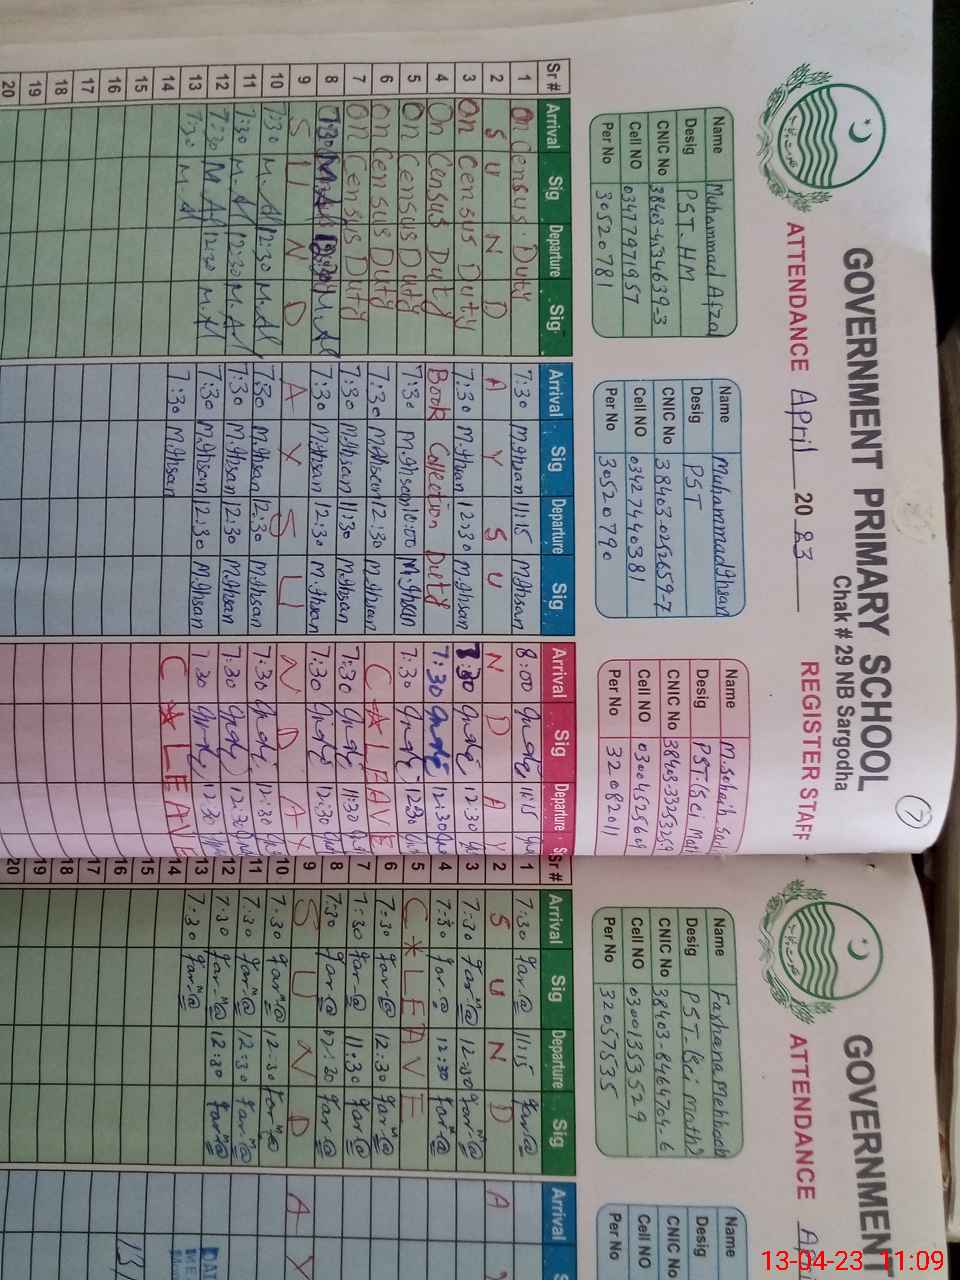 GOVERNMENT PRIMARY SCHOOL
Chak # 29 NB Sargodha
7
ATTENDANCE April 2023 REGISTER STAFF
Name Muhammad Afzal
Desig PST-HM
CNIC No 38403-4334639-3
Cell NO 03477971957
Per No 30520781
Name Muhammad Ihsan
Desig PST
CNIC No 38403-0212659-7
Cell NO 03427440381
Per No 30520790
Name M. Sohaib
Desig PST(Sci Mat
CNIC No 38403-
Cell NO 03004525609
Per No 32082011
Sr # Arrival Sig Departure Sig Arrival Sig Departure Sig Arrival Sig Departure
1 On Census Duty 7:30 M.Ihsan 11:15 M.Ihsan 8:00 11:15
2 S U N D A Y S U N D A Y
3 On Census Duty 7:30 M.Ihsan 12:30 M.Ihsan 7:30 12:30
4 On Census Duty Book Collection Duty 7:30 12:30
5 On Census Duty 7:30 M.Ihsan 10:00 M.Ihsan 7:30 12:30
6 On Census Duty 7:30 M.Ihsan 12:30 M.Ihsan C * LEAVE
7 On Census Duty 7:30 M.Ihsan 11:30 M.Ihsan 7:30 11:30
8 7:30 M.Af 12:30 M.Af 7:30 M.Ihsan 12:30 M.Ihsan 7:30 12:30
9 S U N D A Y S U N D A Y
10 7:30 M.Af 12:30 M.Af 7:30 M.Ihsan 12:30 M.Ihsan 7:30 12:30
11 7:30 M.Af 12:30 M.Af 7:30 M.Ihsan 12:30 M.Ihsan 7:30 12:30
12 7:30 M.Af 12:30 M.Af 7:30 M.Ihsan 12:30 M.Ihsan 7:30 12:30
13 7:30 M.Af 7:30 M.Ihsan C * LEAVE
14
15
16
17
18
19
20
GOVERNMENT
ATTENDANCE Ap
Name Farhana Mehboob
Desig PST-Sci Math
CNIC No 38403-8464704-6
Cell NO 03001353529
Per No 32057535
Name
Desig
CNIC No
Cell NO
Per No
Sr # Arrival Sig Departure Sig Arrival S
1 7:30 11:15
2 S U N D A
3 7:30 12:30
4 7:30 12:30
5 C * LEAVE
6 7:30 12:30
7 7:30 11:30
8 7:30 12:30
9 S U N D A Y
10 7:30 12:30
11 7:30 12:30
12 7:30 12:30
13 7:30
14
15
16
17
18
19
20
13-04-23 11:09